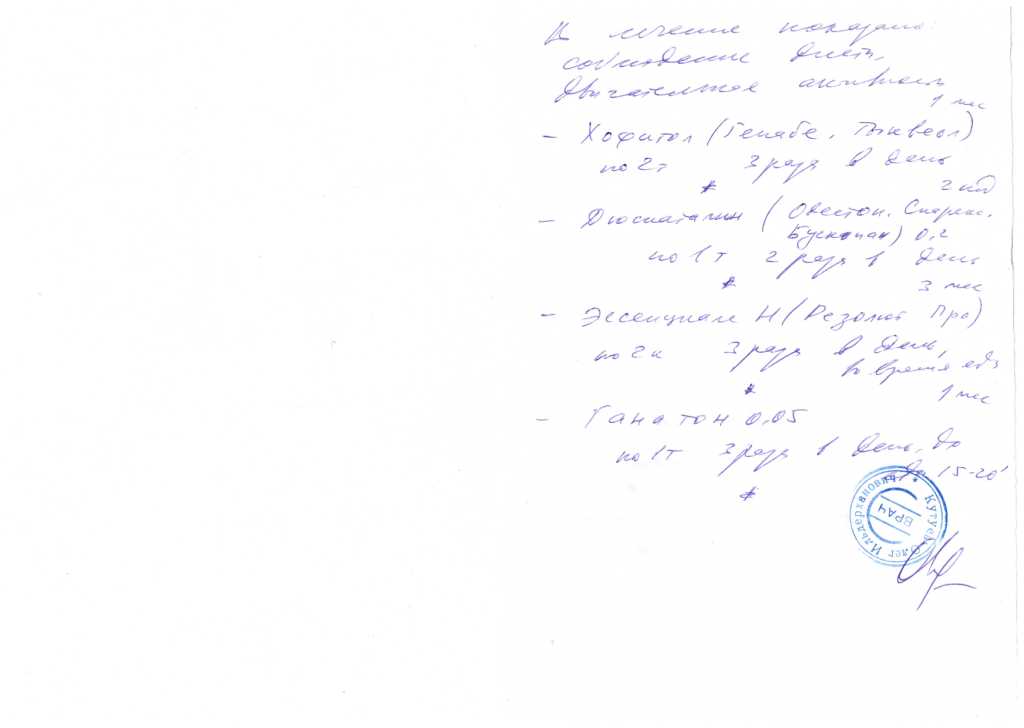 К лечению показано:
соблюдение диеты,
двигательная активность
1 мес
- Хофитол (Гепабе, Тыквеол)
по 2т 3 раза в день
*
2 нед
- Дюспаталин (Одестон, Спарекс,
Бускопан) 0,2
по 1т 2 раза в день
*
3 мес
- Эссенциале Н (Резалют Про)
по 2к 3 раза в день,
во время еды
*
1 мес
- Ганатон 0,05
по 1т 3 раза в день, до
еды 15-20'
*
Кутуев Олег Ильдерханович
ВРАЧ